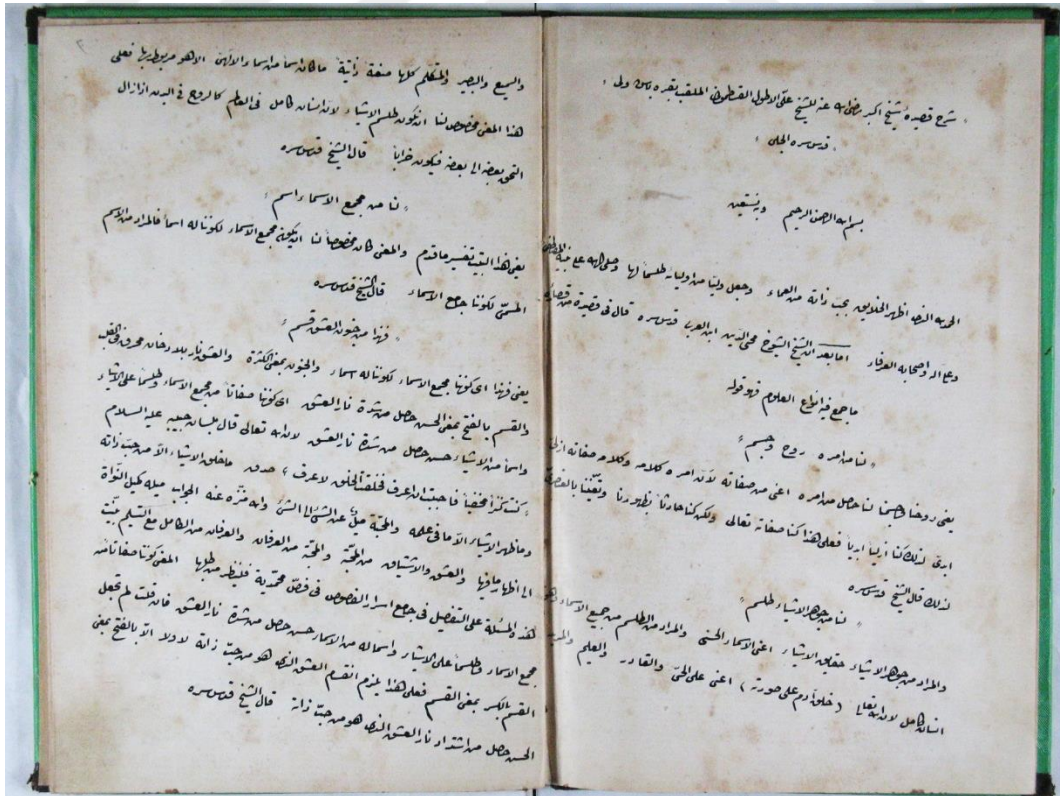 شرح قصيدهٔ شيخ اكبر رضى الله عنه للشيخ على الاطول القسطمونى الملقب بقره باش ولى
قدس سره الجلى
بسم الله الرحمن الرحيم وبه نستعين
الحمد لله الذى اظهر الخلايق بحب ذاته من العماء وجعل وليا من اوليائه طلسما لها وصلى الله على حبيبه المصطفى
وعلى آله واصحابه العرفاء اما بعد ان الشيخ الشيوخ محى الدين ابن العربى قدس سره قال فى قصيدة من قصائده
ما جمع فيه انواع العلوم فهو قوله
لنا من امره روح وجسم
يعنى روحنا وجسمنا لنا حصل من امره اعنى من صفاته لان امره كلامه وكلامه صفاته ازلى
ابدى لذلك كنا ازليا ابديا فعلى هذا كنا صفاته تعالى ولكن كنا حادثا بظهورنا وتعيننا بالعنصرى
لذلك قال الشيخ قدس سره
لنا من جوهر الاشياء طلسم
والمراد من جوهر الاشياء حقايق الاشياء اعنى الاسماء الحسنى والمراد من الطلسم من جميع الاسماء وهو
انسان كامل لان الله تعالى (خلق آدم على صورته) اعنى على الحى والقادر والعليم والمريد
والسميع والبصير والمتكلم كلها صفة ذاتية ما كان اسما من اسماء الالهى الا هو مربوط بها فعلى
هذا المعنى مخصوص لنا ان نكون طلسم الاشياء لان انسان كامل فى العالم كالروح فى البدن اذا زال
التحق بعضه الى بعضه فيكون خرابا قال الشيخ قدس سره
لنا من مجمع الاسماء اسم
يعنى هذا البيت تفسير ما قدم والمعنى كان مخصوصا لنا ان يكون مجمع الاسماء لكوننا له اسما فالمراد من الاسم
المسمى لكوننا جامع الاسماء قال الشيخ قدس سره
فهذا من جنون العشق قسم
يعنى فهذا اى كوننا مجمع الاسماء لكوننا له اسماء والجنون بمعنى الكثرة والعشق نار بلا دخان محرق فى القلب
والقسم بالفتح بمعنى الحسن حصل من شدة نار العشق اى كوننا صفاتا من مجمع الاسماء وطلسما على الاشياء
واسما من الاشياء حسن حصل من شدة نار العشق لان الله تعالى قال بلسان حبيبه عليه السلام
كنت كنزا مخفيا فاحببت ان اعرف فخلقت الخلق لاعرف صدق ما خلق الاشياء الا من حب ذاته
وما ظهر الاشياء الا ما فى علمه والمحبة ميل عن الشئ الى الشئ والله منزه عنه الجواب ميله كميل النواة
الى اظهار ما فيها والعشق والاشتياق من المحبة والمحبة من العرفان والعرفان من الكامل مع التسليم
هذه والمسئلة على التفصيل فى جامع اسرار الفصوص فى فص محمدية فلينظر من طلبها المعنى كوننا صفاتا من
مجمع الاسماء وطلسما على الاشياء واسماله من الاسماء حسن حصل من شدة نار العشق فان قلت لم تجعل
القسم بالكسر بمعنى القسم فعلى هذا يلزم انقسام العشق الذى هو من حب ذاته لا ولا الا بالفتح بمعنى
الحسن حصل من اشتداد نار العشق الذى هو من حب ذاته قال الشيخ قدس سره